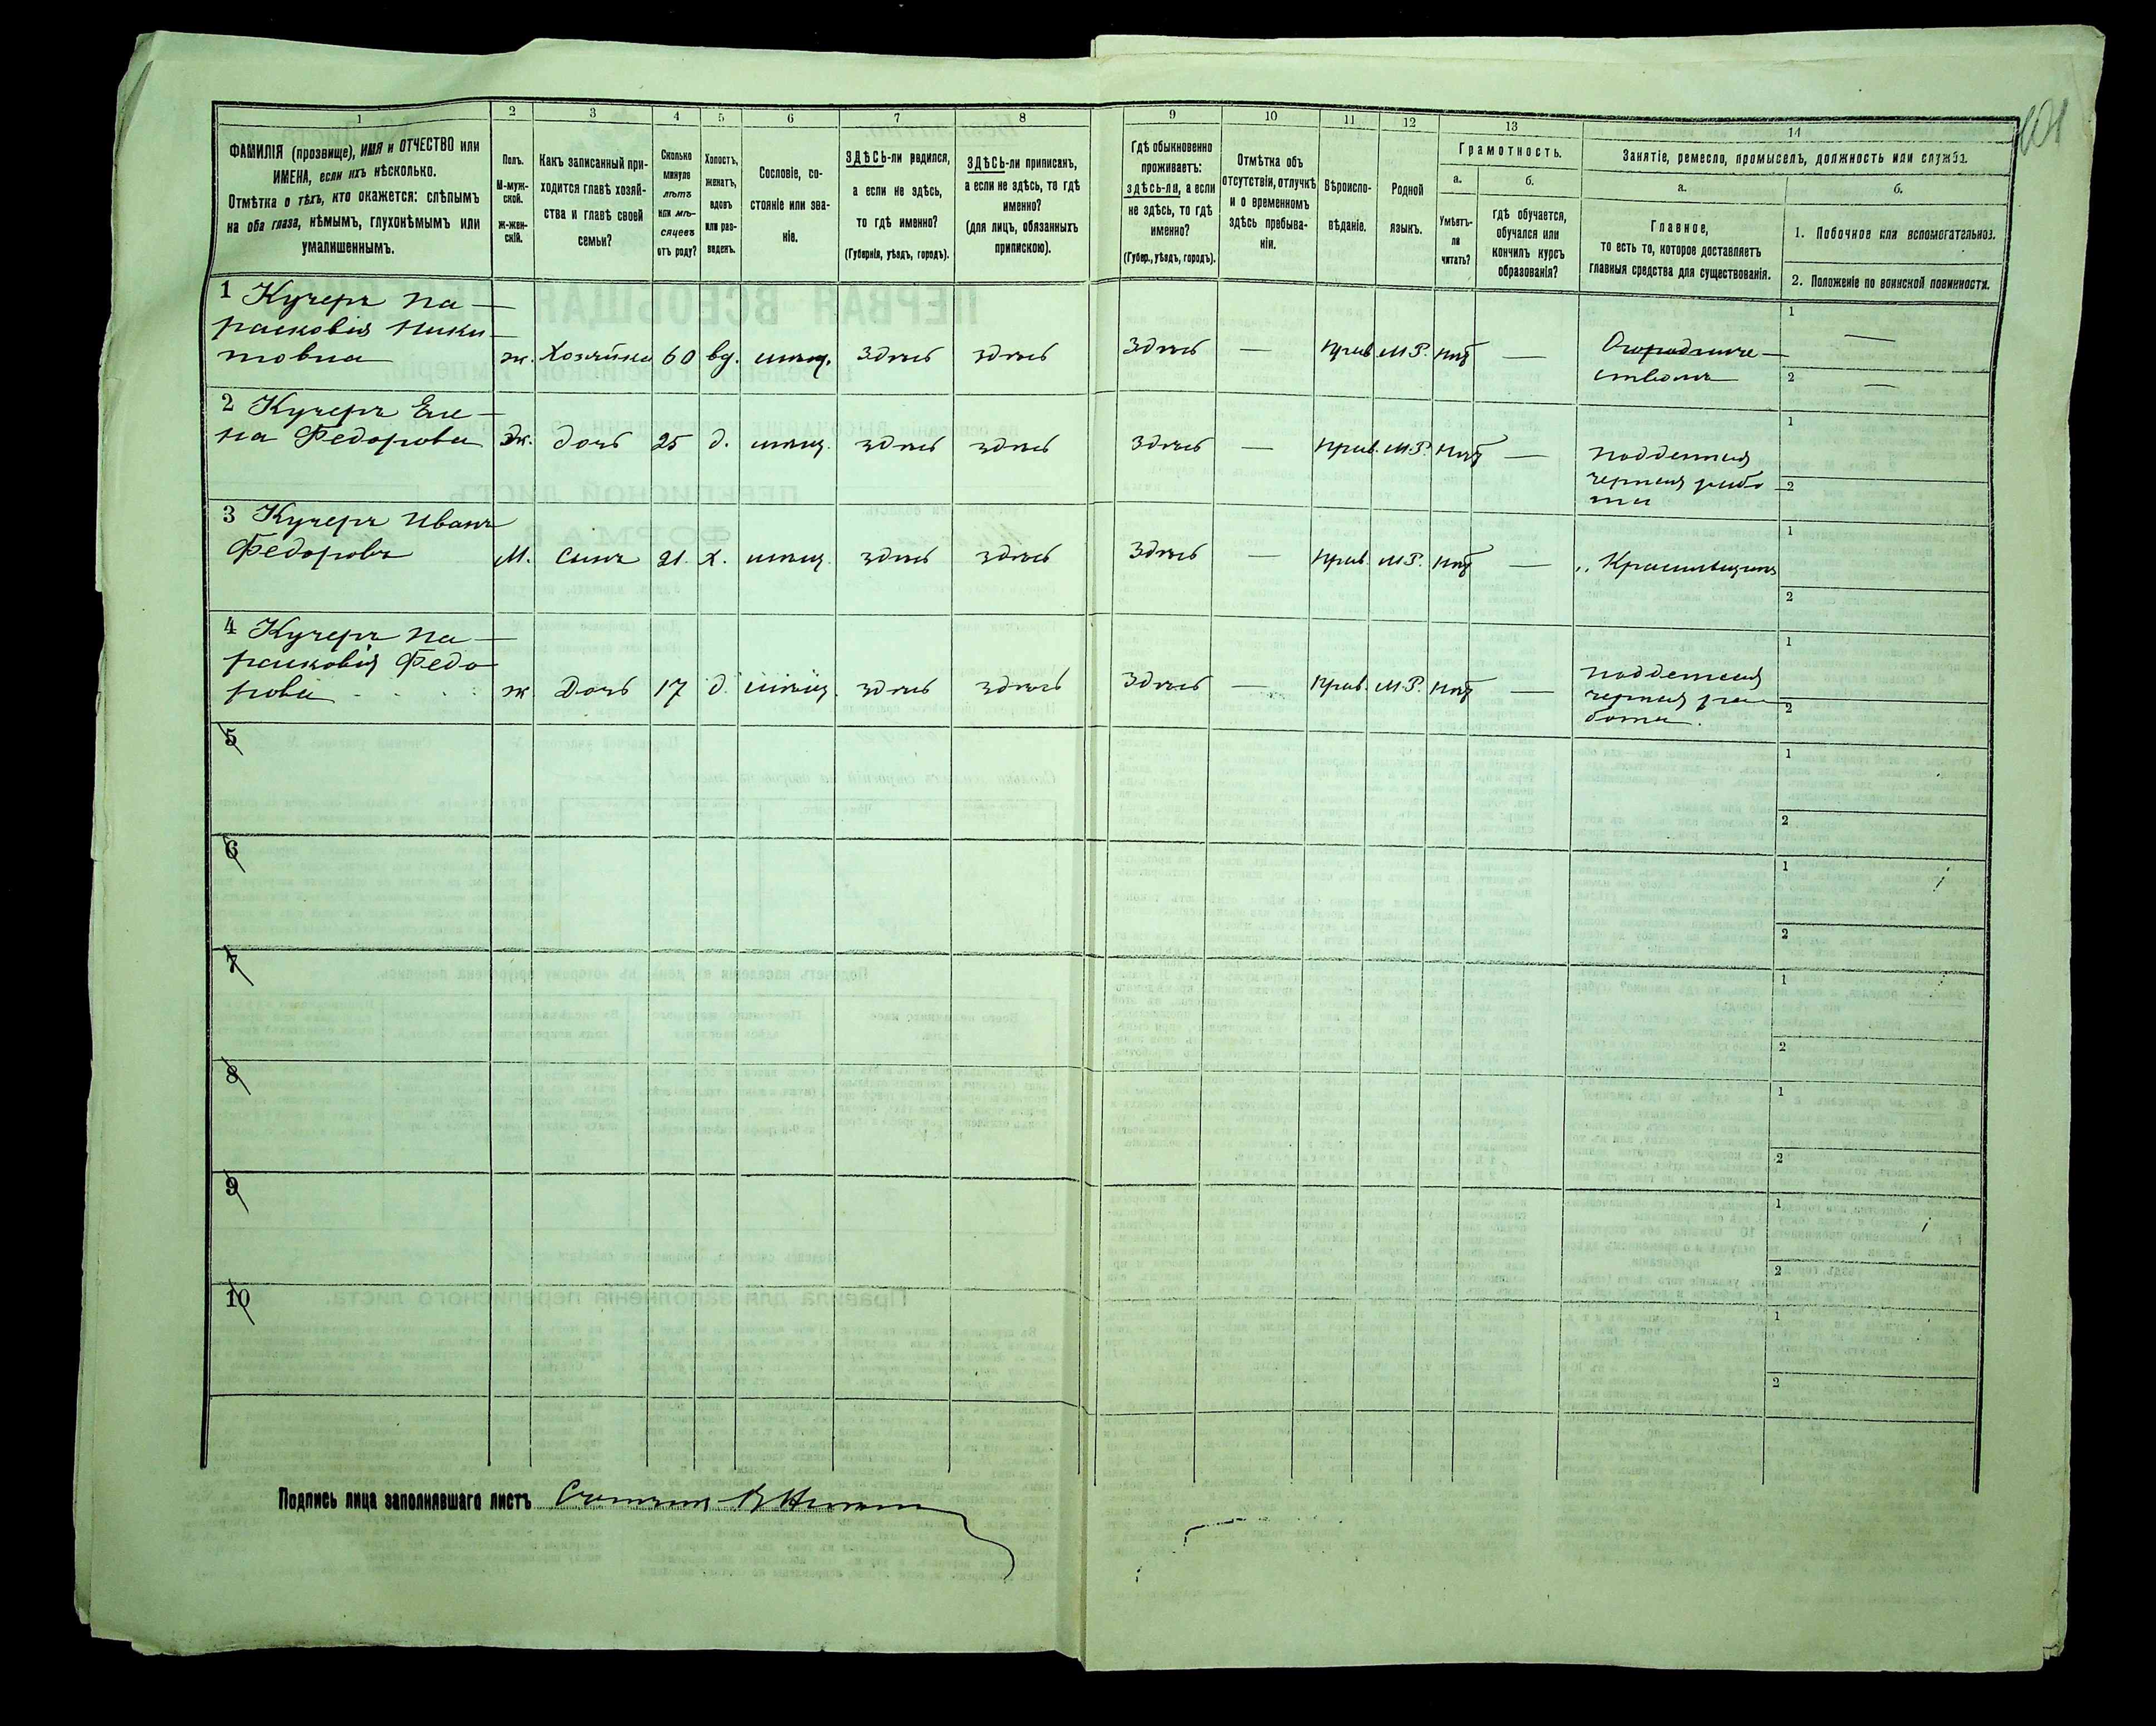 101
1 2 3 4 5 6 7 8 9 10 11 12 13 14
ФАМИЛІЯ (прозвище), ИМЯ и ОТЧЕСТВО или
ИМЕНА, если ихъ нѣсколько.
Отмѣтка о тѣхъ, кто окажется: слѣпымъ
на оба глаза, нѣмымъ, глухонѣмымъ или
умалишеннымъ.
Полъ.
М-муж-
ской.
Ж-жен-
скій.
Какъ записанный при-
ходится главѣ хозяй-
ства и главѣ своей
семьи?
Сколько
минуло
лѣтъ
или мѣ-
сяцевъ
отъ роду?
Холостъ,
женатъ,
вдовъ
или раз-
веденъ.
Сословіе, со-
стояніе или зва-
ніе.
ЗДѢСЬ-ли родился,
а если не здѣсь,
то гдѣ именно?
(Губернія, уѣздъ, городъ).
ЗДѢСЬ-ли приписанъ,
а если не здѣсь, то гдѣ
именно?
(для лицъ, обязанныхъ
припискою).
Гдѣ обыкновенно
проживаетъ:
здѣсь-ли, а если
не здѣсь, то гдѣ
именно?
(Губер., уѣздъ, городъ).
Отмѣтка объ
отсутствіи, отлучкѣ
и о временномъ
здѣсь пребыва-
ніи.
Вѣроиспо-
вѣданіе.
Родной
языкъ.
Грамотность.
а.
Умѣетъ-
ли
читать?
б.
гдѣ обучается,
обучался или
кончилъ курсъ
образованія?
Занятіе, ремесло, промыселъ, должность или служба.
а.
Главное,
то есть то, которое доставляетъ
главныя средства для существованія.
б.
1. Побочное или вспомогательное.
2. Положеніе по воинской повинности.
1 Кучеръ Па-
расковія Ники-
товна ж. Хозяйка 60 вд. мѣщ. здѣсь здѣсь здѣсь — прав. М.Р. нѣт — Огородниче-
ствомъ
1 —
2 —
2 Кучеръ Еле-
на Федорова ж. дочь 25 д. мѣщ. здѣсь здѣсь здѣсь — прав. М.Р. нѣт — поденная
черная рабо
та
1
2
3 Кучеръ Иванъ
Федоровъ М. сынъ 21. х. мѣщ. здѣсь здѣсь здѣсь — прав. М.Р. нѣт — „ Красильщикъ
1
2
4 Кучеръ Па-
расковія Федо
рова ж дочь 17 д. мѣщ. здѣсь здѣсь здѣсь — прав. М.Р. нѣт — поденная
черная ра-
бота.
1
2
5
1
2
6
1
2
7
1
2
8
1
2
9
1
2
10
1
2
Подпись лица заполнявшаго листъ Счетчикъ